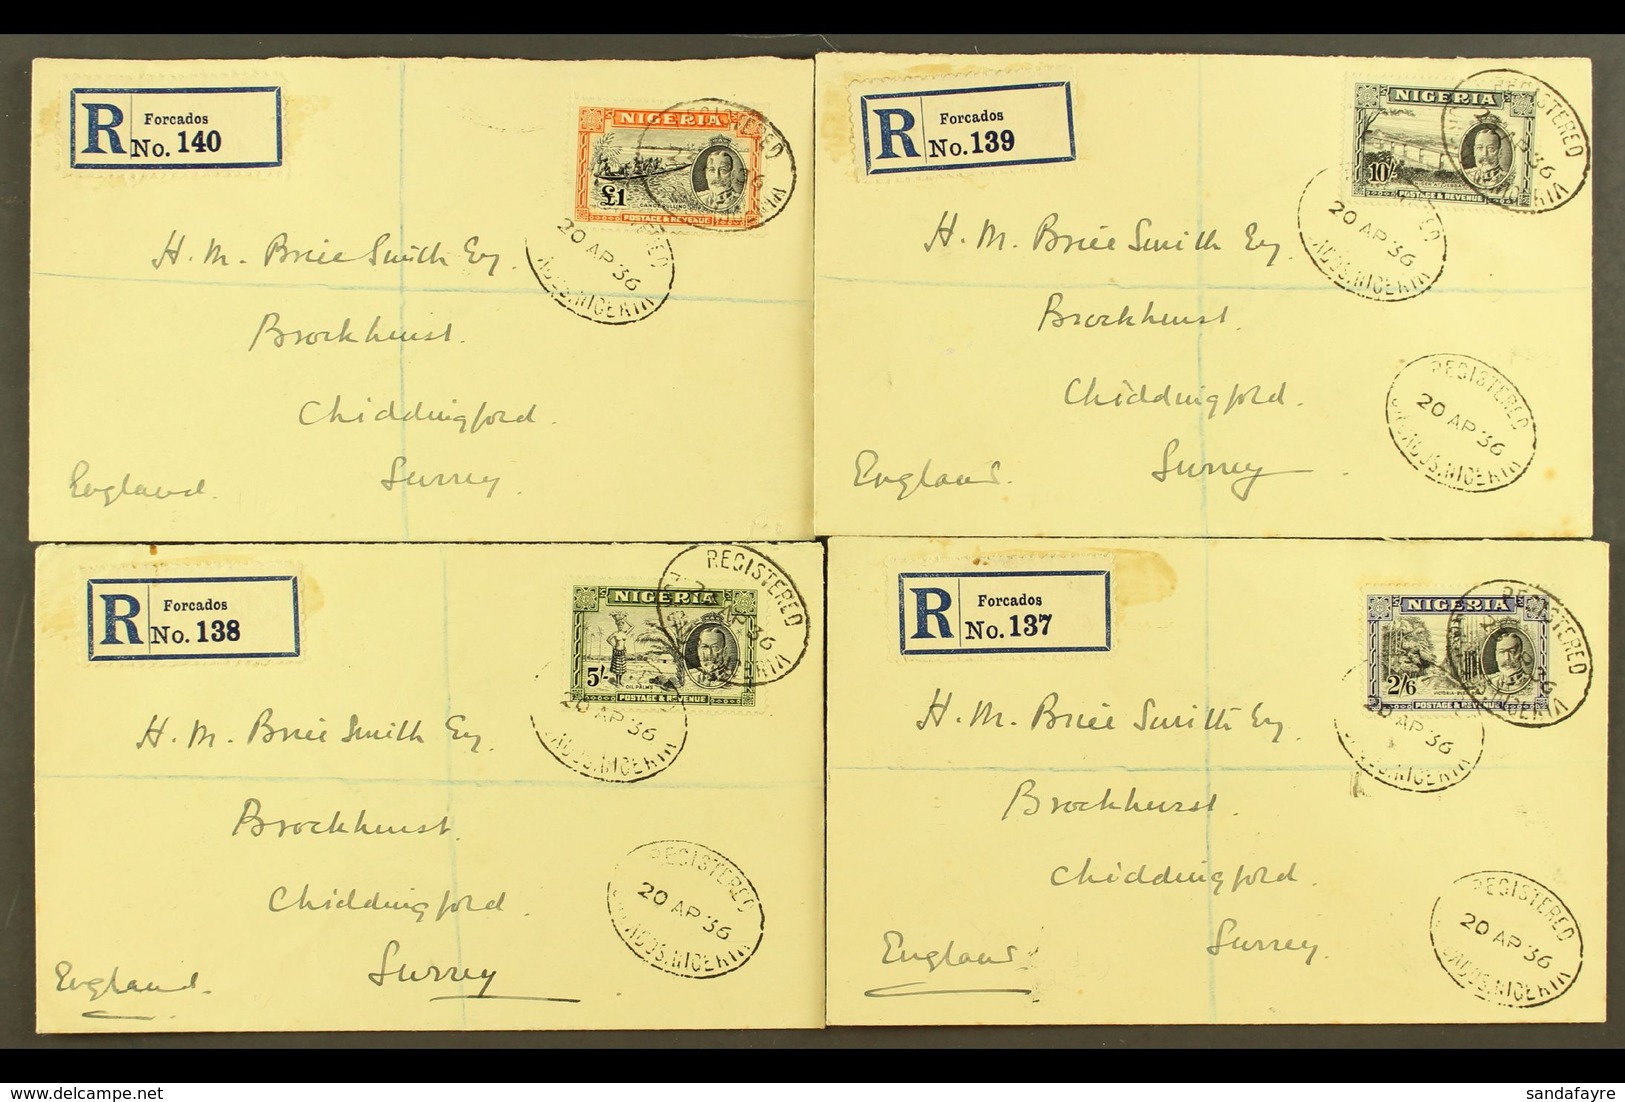 R
Forcados
No. 140
NIGERIA
£1
CANOE PULLING
POSTAGE & REVENUE
REGISTERED
20 AP 36
NIGERIA
H. M. Brice Smith Esq.
Brockhurst.
Chiddingfold.
Surrey.
England.
R
Forcados
No. 139
NIGERIA
10/-
POSTAGE & REVENUE
REGISTERED
20 AP 36
NIGERIA
H. M. Brice Smith Esq.
Brockhurst.
Chiddingfold.
Surrey.
England.
REGISTERED
20 AP 36
NIGERIA
R
Forcados
No. 138
NIGERIA
5/-
OIL PALMS
POSTAGE & REVENUE
REGISTERED
20 AP 36
NIGERIA
H. M. Brice Smith Esq.
Brockhurst.
Chiddingfold.
Surrey
England.
REGISTERED
20 AP 36
NIGERIA
R
Forcados
No. 137
NIGERIA
2/6
POSTAGE & REVENUE
REGISTERED
20 AP 36
NIGERIA
H. M. Brice Smith Esq.
Brockhurst.
Chiddingfold.
Surrey.
England
REGISTERED
20 AP 36
NIGERIA
sandafayre